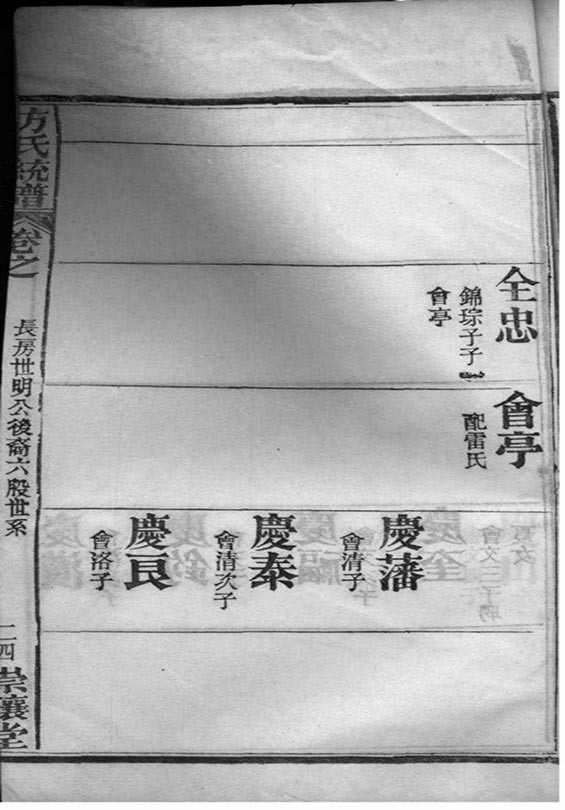 全忠
錦琮子子
會亭
會亭
配雷氏
慶藩
會清子
慶泰
會清次子
慶艮
會洛子
方氏統譜
卷之
長房世明公後裔六殷世系
二四
崇讓堂